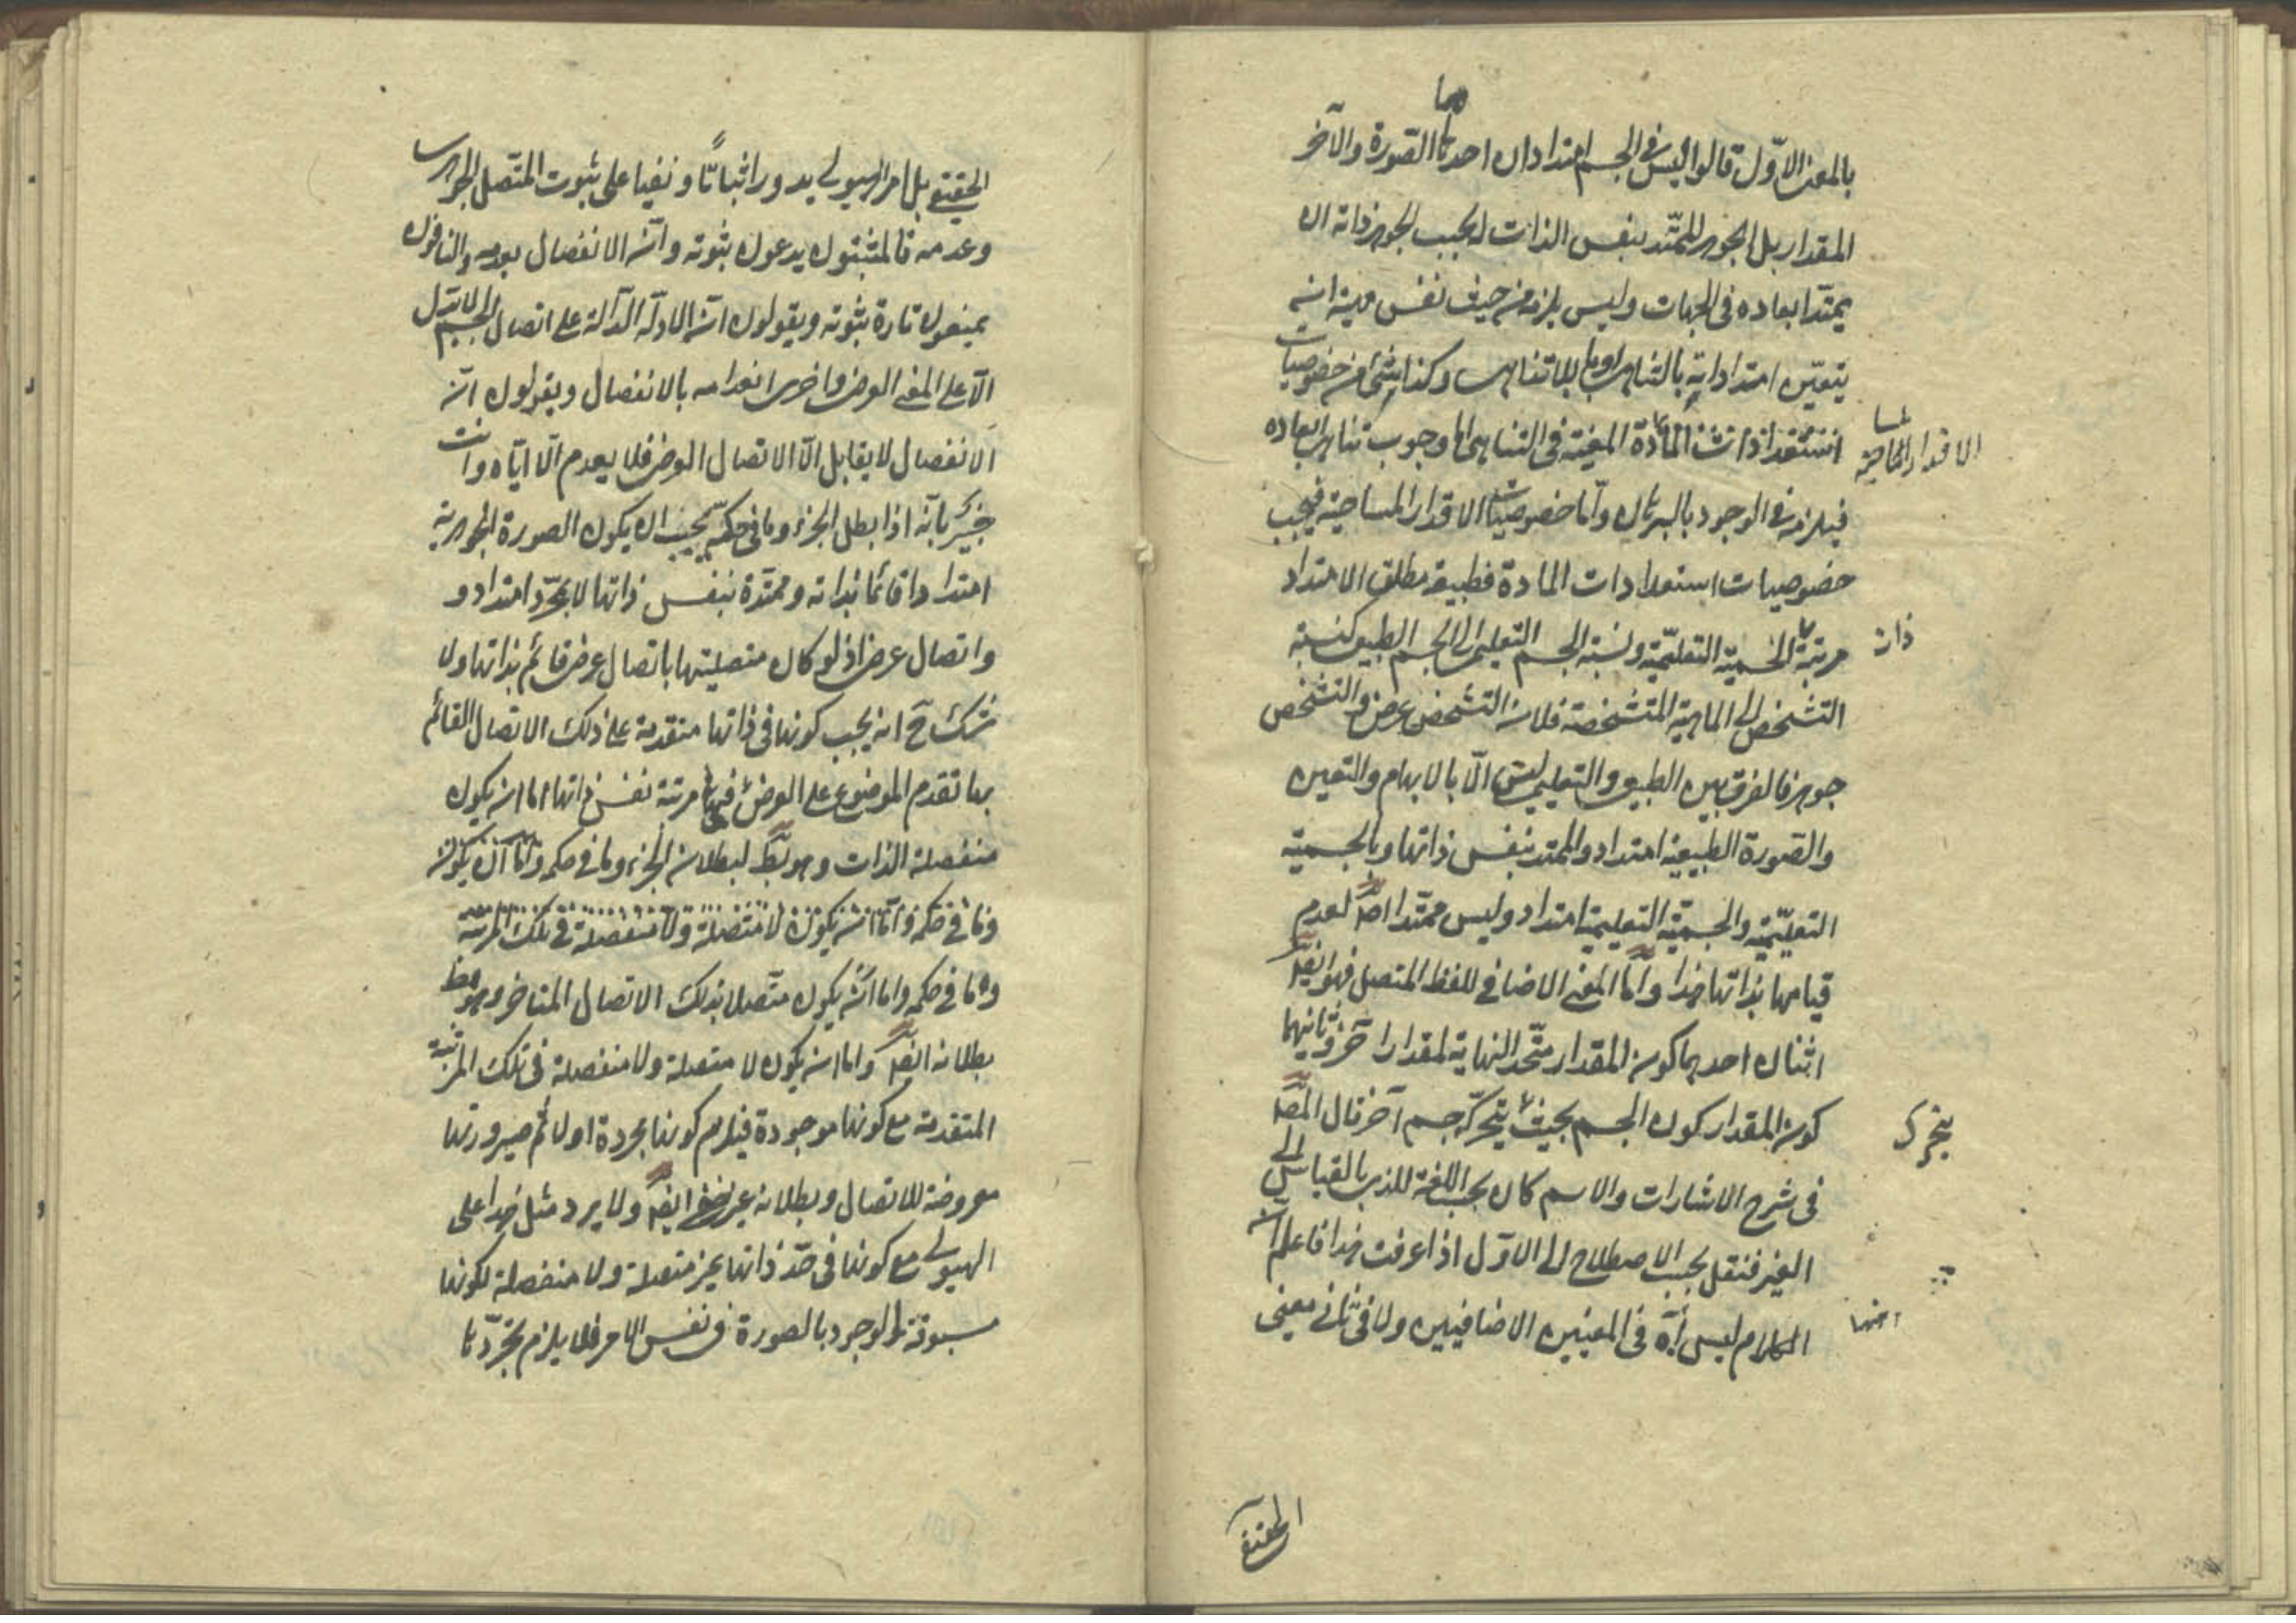 بالمعنى الاوّل قالوا ليس فى الجسم امتدادان احدهما الصّورة والآخر
المقدار بل الجوهر الممتّد بنفس الذات لا يجب لجوهر ذاته ان
يمتدّ ابعاده فى الجهات وليس يلزمه من حيث نفس مهيته انه
يتعيّن امتداداته بالتناهى او باللاتناهى وكذا شئ من خصوصيات
الاقدار المساحية
استعدادات المادّة المعينة فى التناهى اما وجوب تناهى ابعاده
فيلزمه فى الوجود بالبرهان وامّا خصوصيّات الاقدار المساحية فيجب
خصوصيات استعدادات المادة فطبيعة مطلق الامتداد
ذات
مرتبة الجسمية التعليميّة ونسبة الجسم التعليمى الى الجسم الطبيعى كنسبة
التشخص الى الماهية المتشخصة فلا ان التشخص عرض والتشخص
جوهر فالفرق بين الطبيعى والتعليمى ليس الّا بالابهام والتعين
والصّورة الطبيعية امتداد والممتد بنفس ذاتها وبالجسمية
التعليميّة والجسميّة التعليمية امتداد وليس ممتدا اصلا لعدم
قيامها بذاتها هذا وامّا المعنى الاضافى للفظ المتصل فهو ايضا
اثنان احدهما كون المقدار متّحد النهاية لمقدار آخر وثانيهما
كون المقدار كون الجسم بحيث يتحرّك جسم آخر قال المص
يتحرك
فى شرح الاشارات والاسم كان بحسب اللغة للذى بالقياس الى
الغير فنقل بحسب الاصطلاح الى الاوّل اذا عرفت هذا فاعلم ان
الكلام ليس فى المعنيين الاضافيين ولا فى ثانى معنى
الحقيقى
الحقيقى بل امر الهيولى يدور اثباتًا ونفيا على ثبوت المتّصل الجوهرى
وعدمه فالمثبتون يدعون ثبوته وانّ الانفصال يعدمه والنافون
يمنعون تارة ثبوته ويقولون انّ الادلّة الدّالة على اتصال الجسم لا تدل
الّا على المعنى العرضى واخرى انعدامه بالانفصال ويقولون انّ
الانفصال لا يقابل الّا الاتصال العرضى فلا يعدم الّا ايّاه وانت
خبير بانّه اذا بطل الجزء وما فى حكمه يجب ان يكون الصورة الجوهرية
امتدادا قائما بذاته وممتدّة بنفس ذاتها لا بمجرّد امتداد و
واتصال عرض اذ لو كان متصليتها باتصال عرض قائم بذاتها ولا
شك ح انه يجب كونها فى ذاتها متقدمة على ذلك الاتصال القائم
بها تقدم الموضوع على العرض فهى فى مرتبة نفس ذاتها اما ان يكون
منفصلة الذات وهو بط لبطلان الجزء وما فى حكمه وامّا ان يكون
وما فى حكمه وامّا ان يكون لا متصلة ولا منفصلة فى تلك المرتبة
وما فى حكمه واما ان يكون متّصلا بذلك الاتصال المتاخر وهو ظ
بطلانه ايضا واما ان يكون لا متصلة ولا منفصلة فى تلك المرتبة
المتقدمة مع كونها موجودة فيلزم كونها مجردة اولا ثم صيرورتها
معروضة للاتصال وبطلانه غير خفى ايضا ولا يرد مثل هذا على
الهيولى مع كونها فى حدّ ذاتها غير متصلة ولا منفصلة لكونها
مسبوقة الوجود بالصورة فى نفس الامر فلا يلزم تجرّدها